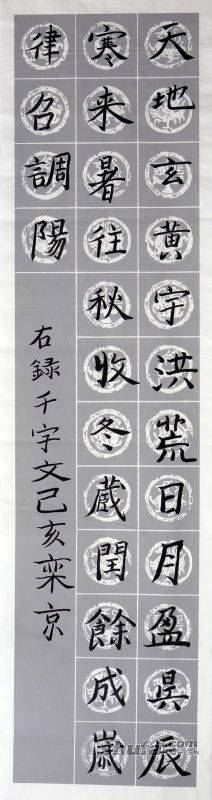 天地玄黄宇洪荒日月盈昃辰
寒来暑往秋收冬蔵閏餘成嵗
律召調陽
右録千字文己亥栾京